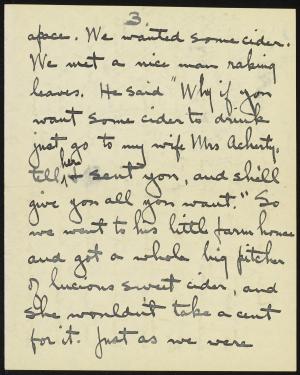 3.
apace. We wanted some cider.
We met a nice man raking
leaves. He said "Why if you
want some cider to drink
just go to my wife Mrs Acherty,
tell her I sent you, and shill
give you all you want." So
we went to his little farm house
and got a whole big pitcher
of lucious sweet cider, and
she wouldn't take a cent
for it. Just as we were